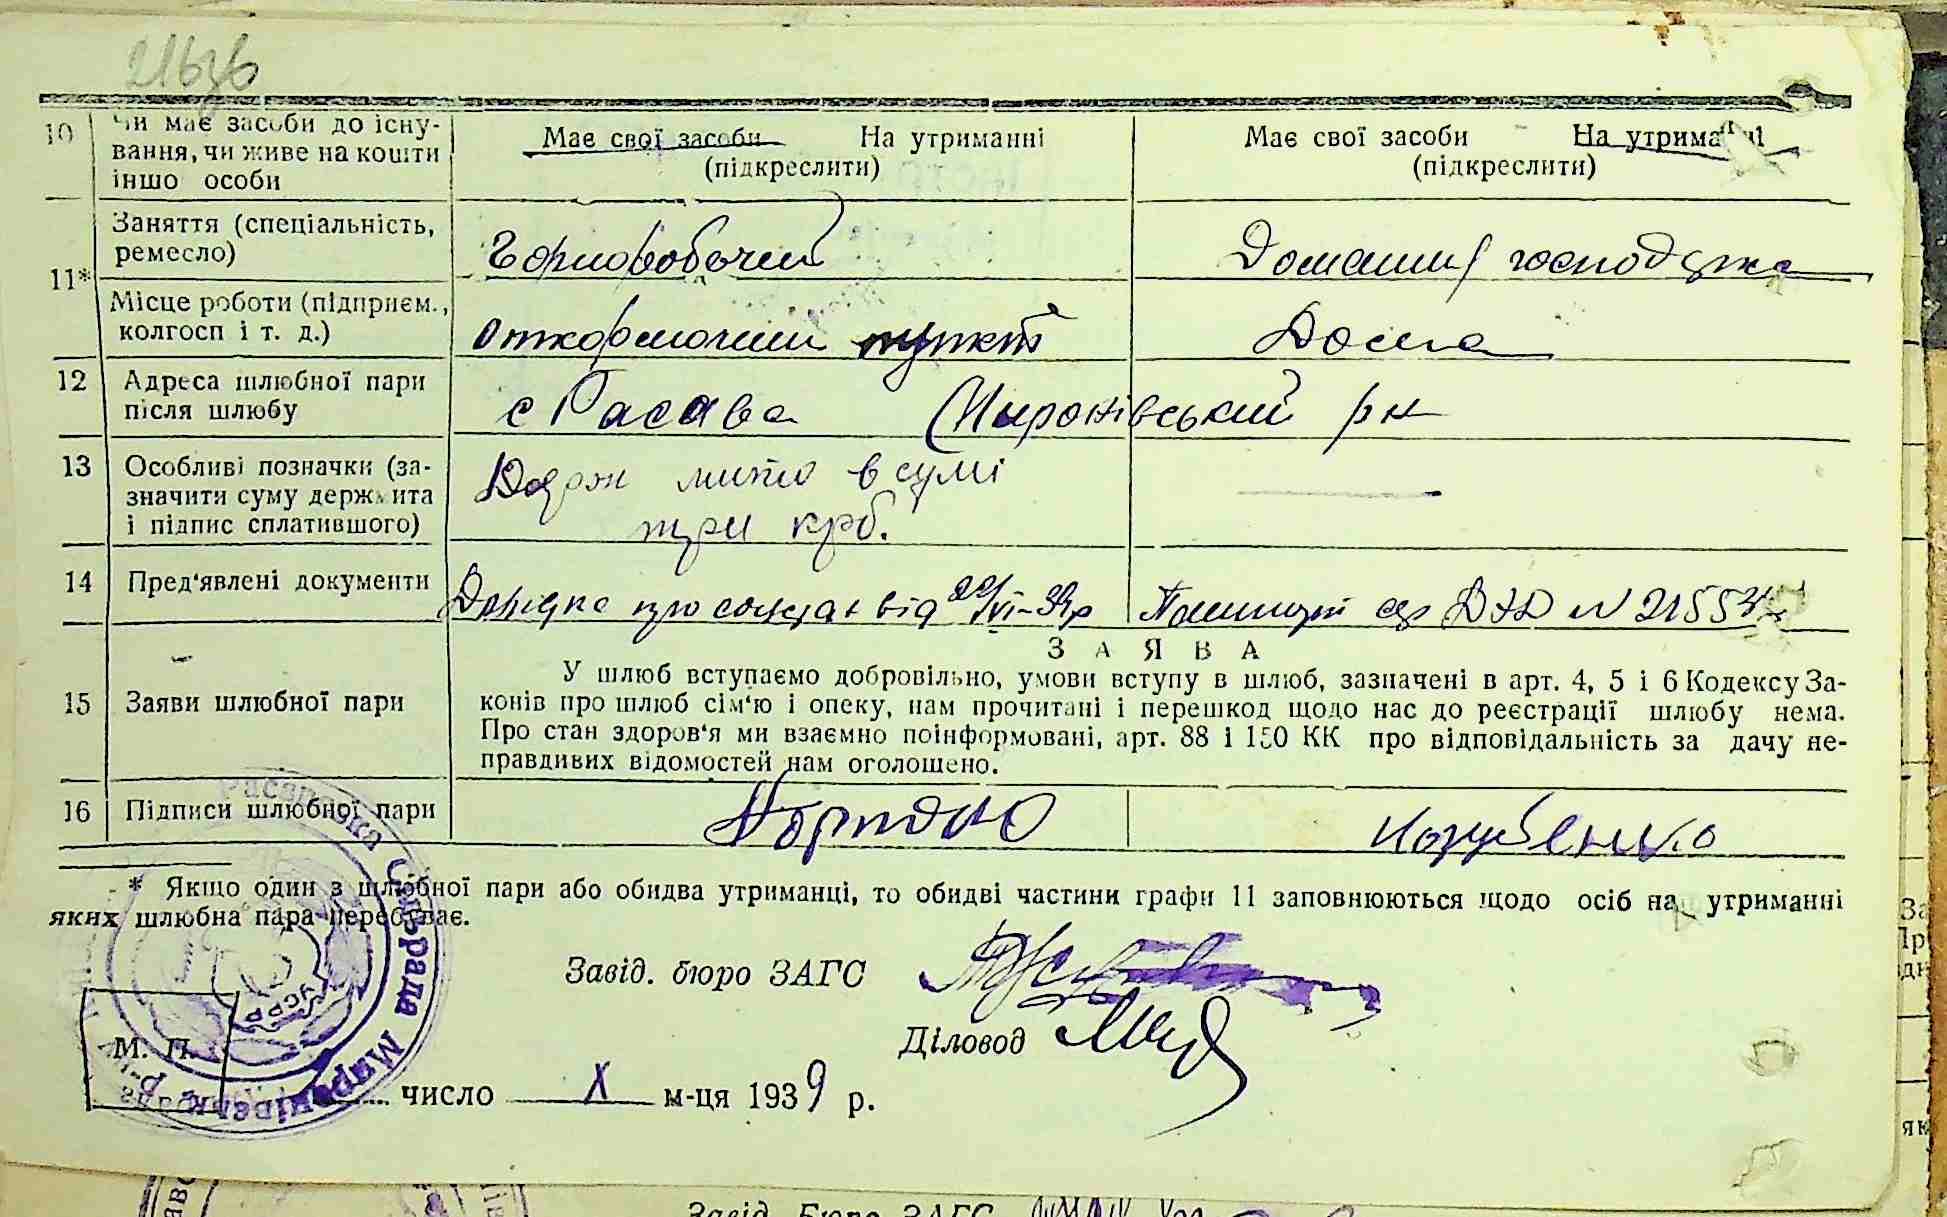 10 Чи має засоби до існу- Має свої засоби На утриманні Має свої засоби На утриманні
вання, чи живе на кошти (підкреслити) (підкреслити)
іншо особи
Заняття (спеціальність, Чорноробочий Домашня господарка
ремесло)
11*
Місце роботи (підприєм., Откормочний пункт Дома
колгосп і т. д.)
12 Адреса шлюбної пари с Расава Миронівський рн
після шлюбу
13 Особливі позначки (за- Держ мито в сумі
значити суму держмита три крб.
і підпис сплатившого)
14 Пред'явлені документи Довідка про від VI-39р Пашпорт №
З А Я В А
У шлюб вступаємо добровільно, умови вступу в шлюб, зазначені в арт. 4, 5 і 6 Кодексу За-
15 Заяви шлюбної пари конів про шлюб сім'ю і опеку, нам прочитані і перешкод щодо нас до реєстрації шлюбу нема.
Про стан здоров'я ми взаємно поінформовані, арт. 88 і 150 КК про відповідальність за дачу не-
правдивих відомостей нам оголошено.
16 Підписи шлюбної пари Козубенко
* Якщо один з шлюбної пари або обидва утриманці, то обидві частини графи 11 заповнюються щодо осіб на утриманні
яких шлюбна пара перебуває.
Завід. бюро ЗАГС
Діловод
М. П.
число X м-ця 1939 р.
Расавська Сільрада Миронівськ
УСРР
Завід. Бюро ЗАГС